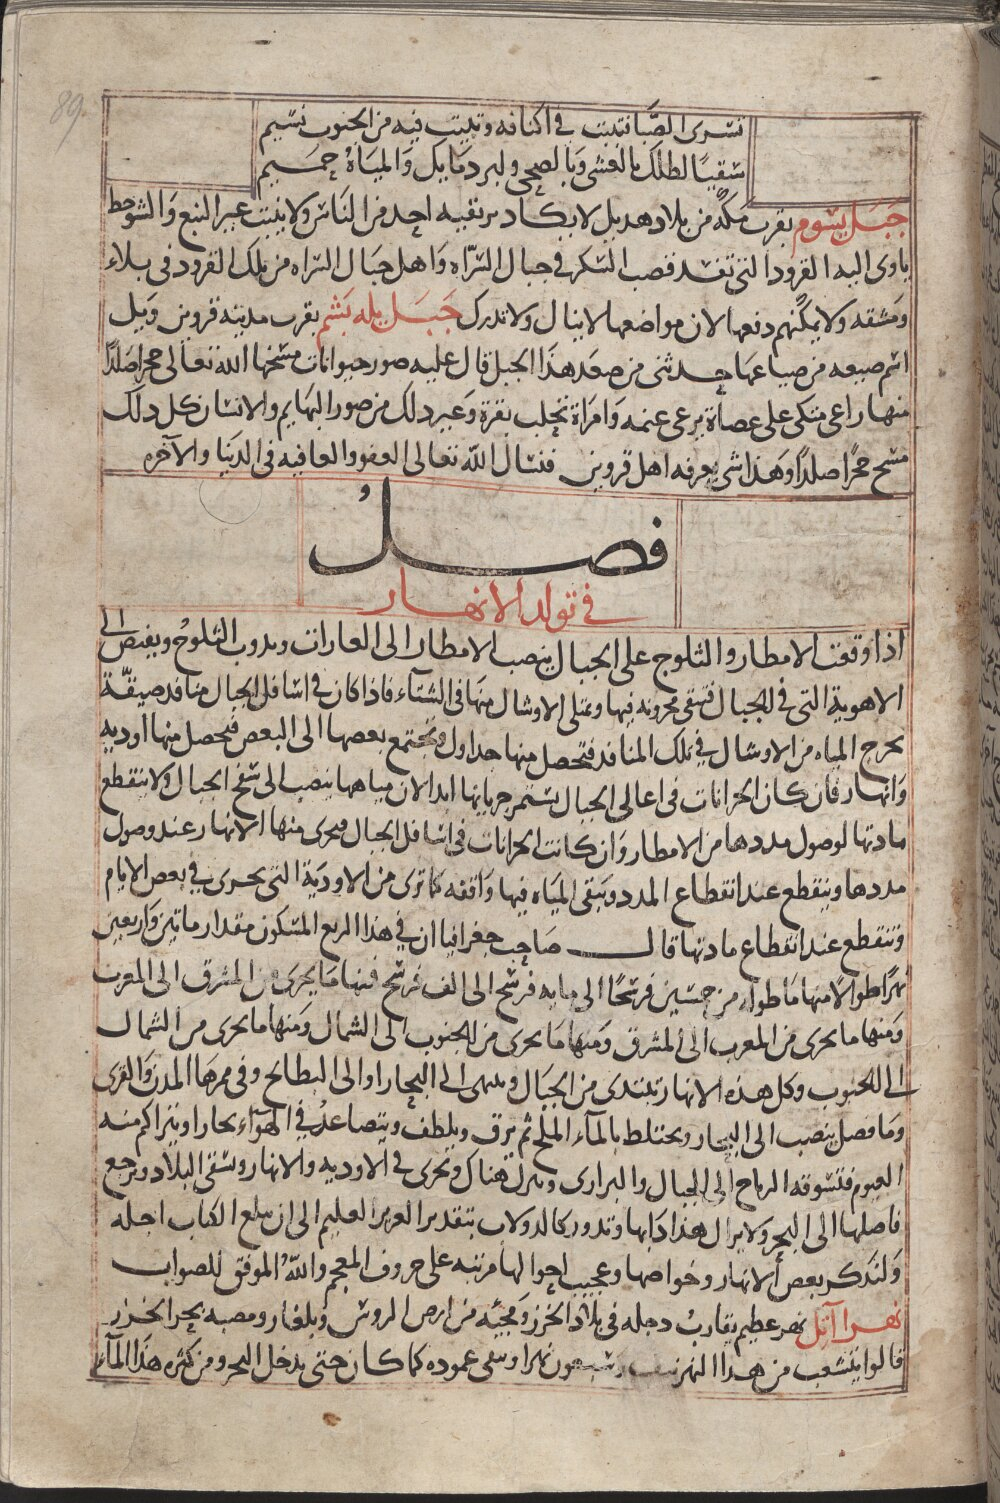 89
تسرى الصبا فتبيت في اكنافه وتبيت فيه من الجنوب نسيم
سقيًا لظلك بالعشى وبالضحى ولبرد مايك والمياه حميم
جبل يسوم بقرب مكة من بلاد هديل لا يكاد يرتقيه احد من الناس ولا ينبت غير النبع والشوحط
ياوى اليه القرود التى تفسد قصب السكر في جبال السراه واهل جبال السراه من تلك القرود في بلاء
ومشقه ولا يمكنهم دفعها لان مواضعها لا ينال ولا تدرك جبل يله بشم بقرب مدينه قزوين ويل
اسم ضيعه من ضياعها حدثنى من صعد هذا الجبل قال عليه صور حيوانات مسخها الله تعالى حجرا صلدًا
منها راعى متكى على عصاة يرعى غنمه وامراة تحلب بقرة وغير ذلك من صور البهايم والانسان كل ذلك
مسخ حجرًا صلدًا وهذا شى يعرفه اهل قزوين فنسال الله تعالى العفو والعافيه في الدنيا والآخره
فصل
في تولد الانهار
اذا وقعت الامطار والثلوج على الجبال ينصب الامطار الى المغارات ويذوب الثلوج ويفيض الى
الاهوية التى في الجبال فتبقى مخزونه فيها ويمتلى الاوشال منها فى الشتاء فاذا كان في اسافل الجبال منافد ضيقة
يخرج المياه من الاوشال في تلك المنافد فتحصل منها جداول وتجتمع بعضها الى البعض فيحصل منها اوديه
وانهار فان كان الخزانات فى اعالى الجبال يستمر جريانها ابدا لان مياهها ينصب الى سفح الجبال ولا ينقطع
مادتها لوصول مددها من الامطار وان كانت الخزانات فى اسافل الجبال فيجرى منها الانهار عند وصول
مددها وينقطع عند انقطاع المدد وتبقى المياه فيها واقفه كما ترى من الاودية التى يجرى في بعض الايام
وتنقطع عند انقطاع مادتها قال صاحب جغرافيا ان في هذا الربع المسكون مقدار ماتين واربعين
نهرًا طوالا منها ما طوله من خمسين فرسخًا الى مايه فرسخ الى الف فرسخ فمنها ما يجرى من المشرق الى المغرب
ومنها ما يجرى من المغرب الى المشرق ومنها ما يجرى من الجنوب الى الشمال ومنها ما يجرى من الشمال
الى الجنوب وكل هذه الانهار تبتدى من الجبال وينتهى الى البحار او الى البطايح وفى ممرها المدن والقرى
وما فضل ينصب الى البحار ويختلط بالماء المالح ثم يرق ويلطف ويتصاعد في الهواء بخارا ويتراكم منه
الغيوم فتسوقه الرياح الى الجبال والبرارى وينزل هناك ويجرى في الاوديه والانهار ويسقى البلاد ويرجع
فاضلها الى البحر ولا يزال هذا دابها وتدور كالدولاب بتقدير العزيز العليم الى ان يبلغ الكتاب اجله
ولنذكر بعض الانهار وخواصها وعجيب احوالها مرتبه على حروف المعجم والله الموفق للصواب
نهر آتل نهر عظيم يقارب دجله في بلاد الخزر ومجيه من ارض الروس وبلغار ومصبه بحر الخزر
قالوا يتشعب من هذا النهر نيف وسبعون نهرا ويبقى عموده كما كان حتى يدخل البحر ومن كثره هذا الماء